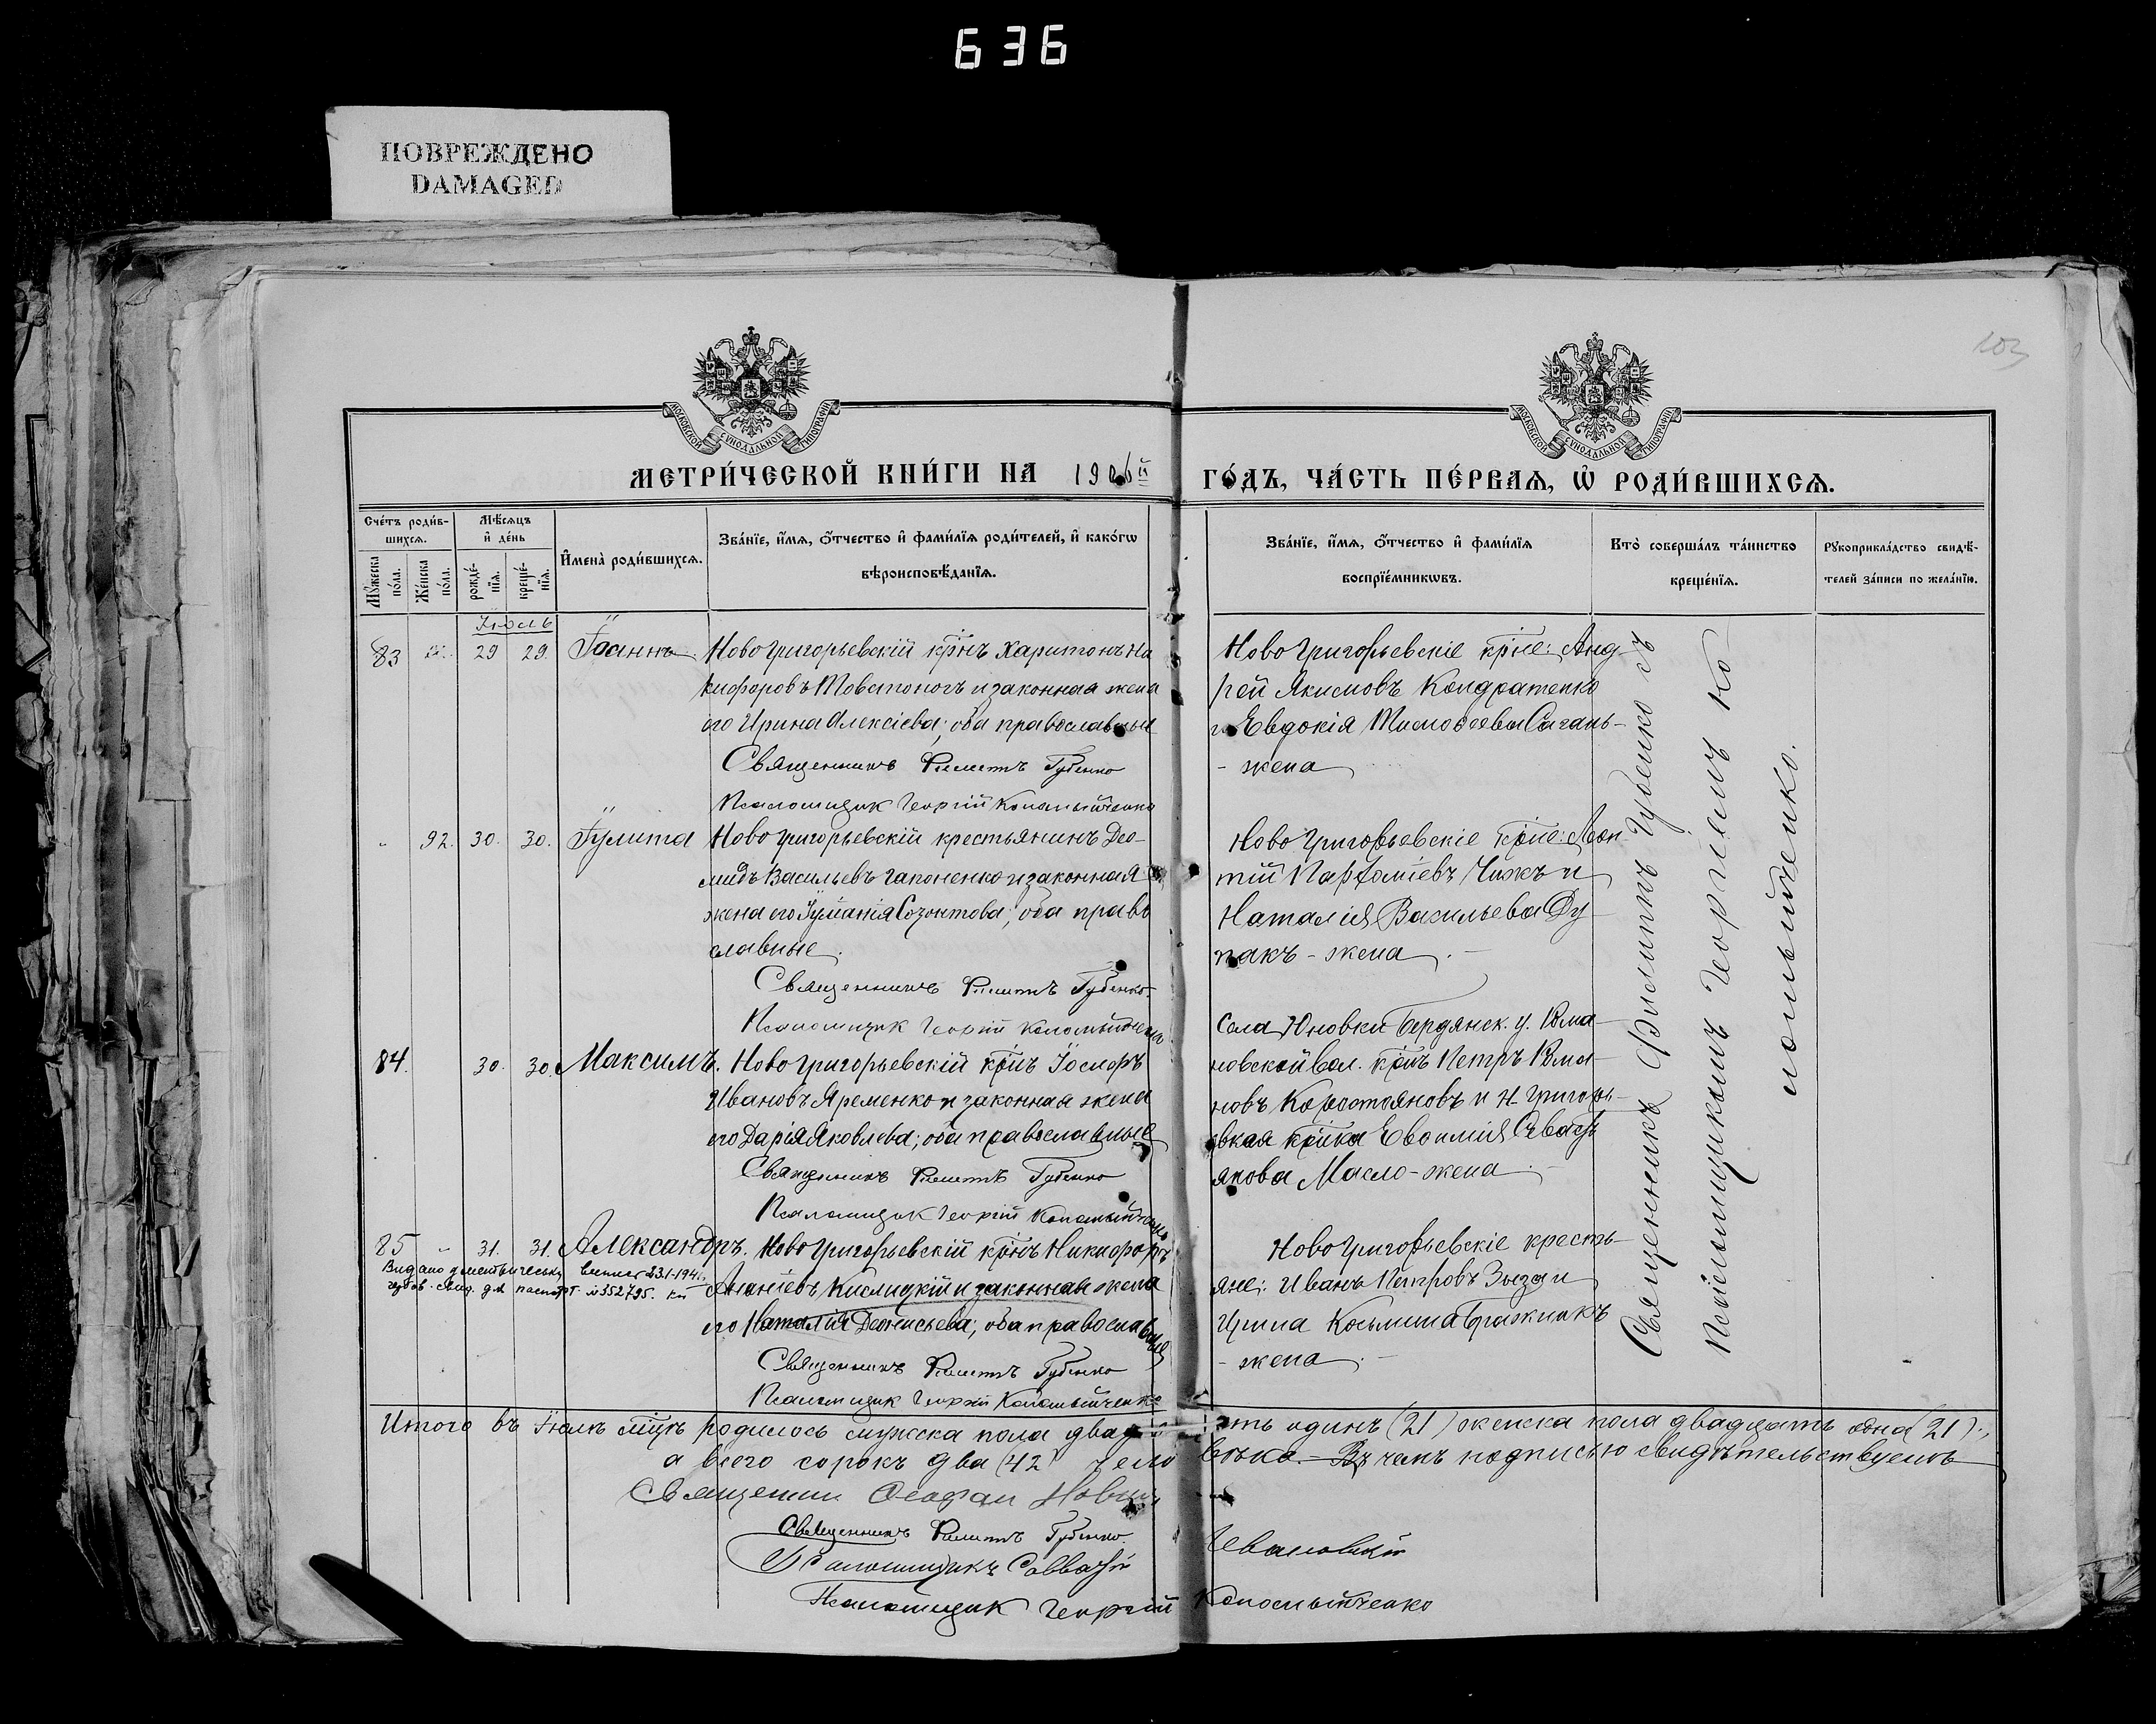 636
ПОВРЕЖДЕНО
DAMAGED
103
МОСКОВСКОЙ СѴНОДАЛЬНОЙ ТИПОГРАФІИ
МОСКОВСКОЙ СѴНОДАЛЬНОЙ ТИПОГРАФІИ
МЕТРИ́ЧЕСКОЙ КНИ́ГИ НА 1906й ГО́ДЪ, ЧА́СТЬ ПЕ́РВАѦ, Ѡ҆ РОДИ́ВШИХСѦ.
Сче́тъ роди́в-
шихсѧ.
Мꙋ́жеска по́ла.
Же́нска по́ла.
Мѣ́сѧцъ
и҆ де́нь
рожде́-нїѧ.
креще́-нїѧ.
И҆мена̀ роди́вшихсѧ.
Зва́нїе, и҆́мѧ, ѻ҆́тчество и҆ фами́лїѧ роди́телей, и҆ како́гѡ
вѣроисповѣ́данїѧ.
Зва́нїе, и҆́мѧ, ѻ҆́тчество и҆ фами́лїѧ
воспрїе́мникѡвъ.
Кто̀ соверша́лъ та́инство
креще́нїѧ.
Рꙋкоприкла́дство свидѣ́-
телей за́писи по жела́нїю.
Іюль
83 29 29. Іоаннъ Новогригорьевскій крнъ Харитонъ Ни
кифоровъ Товстоногъ и законная жена
его Ирина Алексіева; оба православные
Священникъ Филиппъ Губенко
Псаломщик Георгій Коломыйченко
Новогригорьевскіе крне: Анд-
рей Якимовъ Кондратенко
и Евдокія Тимофеева Сагань-
- жена
" 92. 30. 30. Іулита Новогригорьевскій крестьянинъ Део-
мидъ Васильевъ Гапоненко и законная
жена его Іуліанія Созонтова; оба право
славные.
Священникъ Филиппъ Губенко.
Псаломщик Георгій Коломыйченко
Новогригорьевскіе крне: Леон-
тій Парфеміевъ Чижъ и
Наталія Васильева Ду-
пакъ - жена.
84. 30. 30. Максимъ. Новогригорьевскій крнъ Іосифъ
Ивановъ Яременко и законная жена
его Дарія Яковлева; оба православные
Священникъ Филиппъ Губенко
Псаломщик Георгій Коломыйченко
Села Юновки Бердянск. у. Рома-
новской вол. крнъ Петръ Рома-
новъ Коростояновъ и Н-Григорь-
евская крнка Евфимія Севасть
янова Масло - жена.
85 " 31. 31. Александръ. Новогригорьевскій крнъ Никифоръ
Ананіевъ Кислицкій и законная жена
его Наталія Деонисьева; оба православные
Священникъ Филиппъ Губенко
Псаломщик Георгій Коломыйченко
23.1-194
паспорт № 352795.
Новогригорьевскіе кресть-
яне: Иванъ Петровъ Зыза и
Ирина Косьмина Бражникъ
- жена.
Священникъ Филиппъ Губенко съ
псаломщикомъ Георгіемъ Ко-
ломыйченко.
Итого въ Іюлѣ мцѣ родилось мужска пола двадцать одинъ (21) женска пола двадцать одна (21);
а всего сорокъ два (42) человѣка. - Въ чемъ подписью свидѣтельствуемъ
Священник Феофан Новицкій
Священникъ Филиппъ Губенко.
Псаломщикъ Савватій Ивановскій
Псаломщик Георгій Коломыйченко